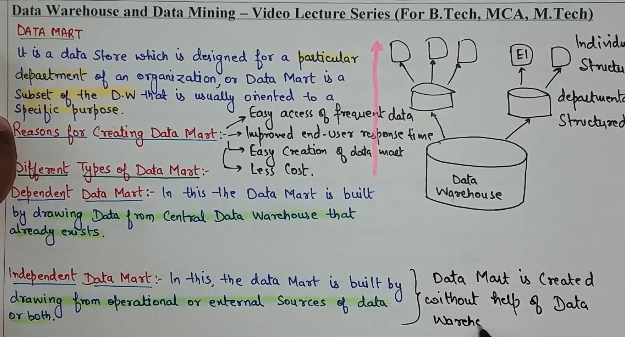 Data Warehouse and Data Mining – Video Lecture Series (For B.Tech, MCA, M.Tech)
DATA MART
It is a data store which is designed for a particular
department of an organization, or Data Mart is a
Subset of the D.W that is usually oriented to a
Specific purpose.
Reasons for Creating Data Mart:-
→ Easy access of frequent data
→ Improved end-user response time
→ Easy Creation of data mart
→ Less Cost.
Different Types of Data Mart:-
Dependent Data Mart:- In this the Data Mart is built
by drawing Data from Central Data Warehouse that
already exists.
Independent Data Mart:- In this, the data Mart is built by
drawing from operational or external Sources of data
or both.
Data Mart is Created
without help of Data
Wareho
E1
Individu
Structu
department
Structured
Data
Warehouse